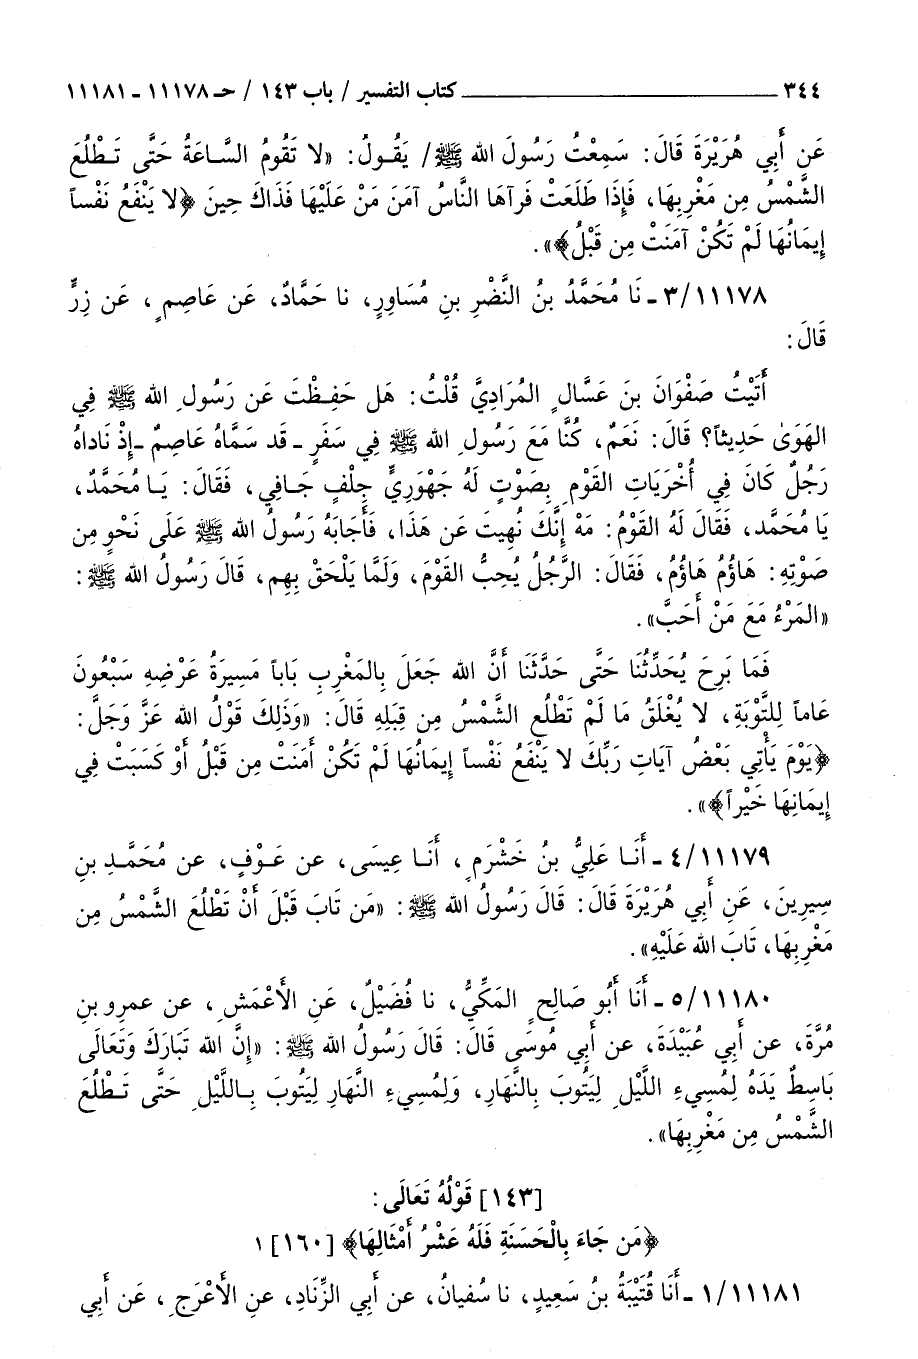 ٣٤٤ ــــــــــــــــــــــــــــــ كتاب التفسير / باب ١٤٣ / حـ ١١١٧٨ - ١١١٨١
عَن أَبِي هُرَيْرَةَ قَالَ: سَمِعْتُ رَسُولَ الله ﷺ/ يَقُولُ: «لا تَقُومُ السَّاعَةُ حَتَّى تَطْلُعَ
الشَّمْسُ مِن مَغْرِبِهَا، فَإِذَا طَلَعَتْ فَرآهَا النَّاسُ آمَنَ مَنْ عَلَيْهَا فَذَاكَ حِينَ ﴿لا يَنْفَعُ نَفْساً
إِيمَانُهَا لَمْ تَكُنْ آمَنَتْ مِن قَبْلُ﴾».
٣/١١١٧٨ - نَا مُحَمَّدُ بنُ النَّضْرِ بنِ مُسَاوِرٍ، نا حَمَّادٌ، عَن عَاصِمٍ، عَن زِرٍّ
قَالَ:
أَتَيْتُ صَفْوَانَ بنَ عَسَّالٍ المُرَادِيَّ قُلْتُ: هَل حَفِظْتَ عَن رَسُولِ الله ﷺ فِي
الهَوَىٰ حَدِيثاً؟ قَالَ: نَعَمْ، كُنَّا مَعَ رَسُولِ الله ﷺ فِي سَفَرٍ - قَد سَمَّاهُ عَاصِمٌ - إِذْ نَاداهُ
رَجُلٌ كَانَ فِي أُخْرَيَاتِ القَوْمِ بِصَوْتٍ لَهُ جَهْوَرِيٍّ جِلْفٍ جَافِي، فَقَالَ: يَا مُحَمَّدُ،
يَا مُحَمَّد، فَقَالَ لَهُ القَوْمُ: مَهْ إِنَّكَ نُهِيتَ عَن هَذَا، فَأَجَابَهُ رَسُولُ الله ﷺ عَلَى نَحْوٍ مِن
صَوْتِهِ: هَاؤُمُ هَاؤُم، فَقَالَ: الرَّجُلُ يُحِبُّ القَوْمَ، وَلَمَّا يَلْحَقْ بِهِم، قَالَ رَسُولُ الله ﷺ:
«المَرْءُ مَعَ مَنْ أَحَبَّ».
فَمَا بَرِحَ يُحَدِّثُنَا حَتَّى حَدَّثَنَا أَنَّ الله جَعَلَ بِالمَغْرِبِ بَاباً مَسِيرَةُ عَرْضِهِ سَبْعُونَ
عَاماً لِلتَّوْبَةِ، لا يُغْلَقُ مَا لَمْ تَطْلُعِ الشَّمْسُ مِن قِبَلِهِ قَالَ: «وَذَلِكَ قَوْلُ الله عَزَّ وَجَلَّ:
﴿يَوْمَ يَأْتِي بَعْضُ آيَاتِ رَبِّكَ لا يَنْفَعُ نَفْساً إِيمَانُهَا لَمْ تَكُنْ أَمَنَتْ مِن قَبْلُ أَوْ كَسَبَتْ فِي
إِيمَانِهَا خَيْراً﴾».
٤/١١١٧٩ - أَنَا عَلِيُّ بنُ خَشْرَمٍ، أَنَا عِيسَى، عن عَوْفٍ، عن مُحَمَّدِ بنِ
سِيرِينَ، عَنِ أَبِي هُرَيْرَةَ قَالَ: قَالَ رَسُولُ الله ﷺ: «مَن تَابَ قَبْلَ أَنْ تَطْلُعَ الشَّمْسُ مِن
مَغْرِبِهَا، تَابَ الله عَلَيْهِ».
٥/١١١٨٠ - أَنَا أَبُو صَالحٍ المَكِّيُّ، نا فُضَيْلٌ، عَنِ الأَعْمَشِ، عن عمرِو بنِ
مُرَّةَ، عن أَبِي عُبَيْدَةَ، عن أَبِي مُوسَى قَالَ: قَالَ رَسُولُ الله ﷺ: «إِنَّ الله تَبَارَكَ وَتَعَالَى
بَاسِطٌ يَدَهُ لِمُسِيءِ اللَّيْلِ لِيَتُوبَ بِالنَّهَارِ، وَلِمُسِيءِ النَّهَارِ لِيَتُوبَ بِاللَّيْلِ حَتَّى تَطْلُعَ
الشَّمْسُ مِن مَغْرِبِهَا».
[١٤٣] قَوْلُهُ تَعَالَى:
﴿مَن جَاءَ بِالْحَسَنَةِ فَلَهُ عَشْرُ أَمْثَالِهَا﴾ [١٦٠] ١
١/١١١٨١ - أَنَا قُتَيْبَةُ بنُ سَعِيدٍ، نا سُفيانُ، عن أَبِي الزِّنَادِ، عنِ الأَعْرَجِ، عَن أَبِي